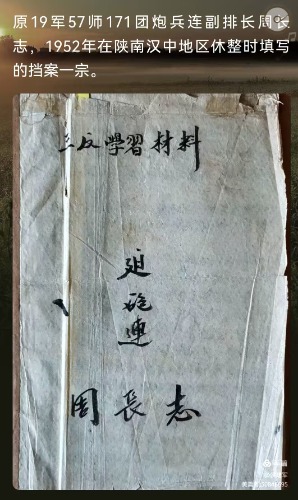 原19军57师171团炮兵连副排长周长
志，1952年在陕南汉中地区休整时填写
的挡案一宗。
三反學習材料
迫
砲
連
周長志